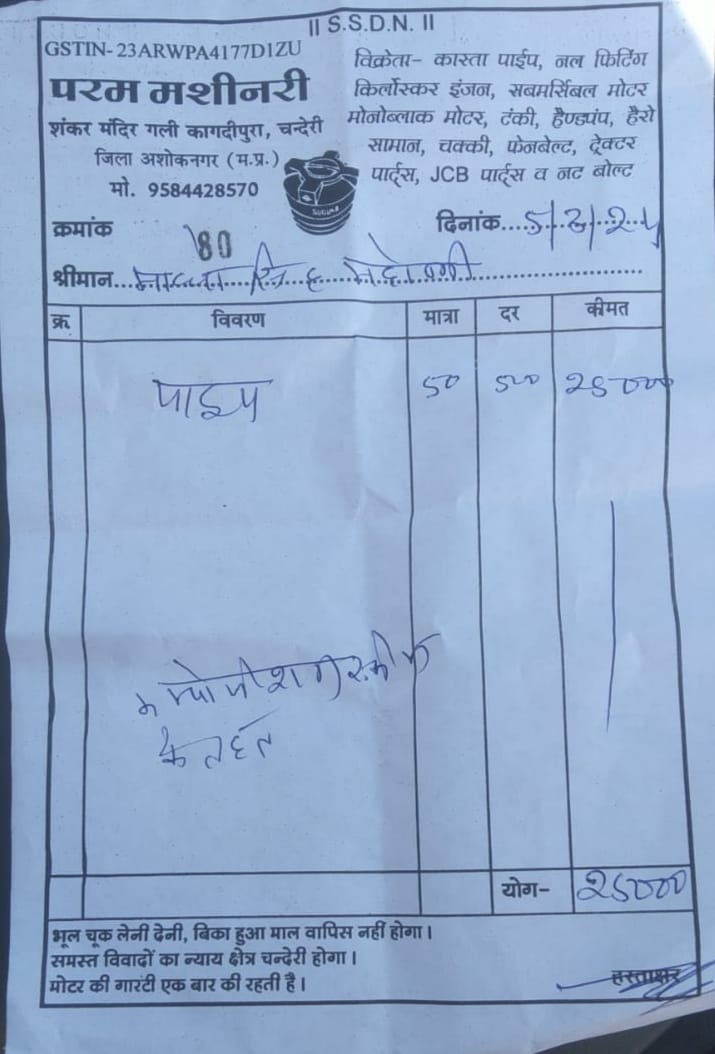 || S.S.D.N. ||
GSTIN-23ARWPA4177D1ZU
परम मशीनरी
शंकर मंदिर गली कागदीपुरा, चन्देरी
जिला अशोकनगर (म.प्र.)
मो. 9584428570
विक्रेता- कास्ता पाईप, नल फिटिंग
किर्लोस्कर इंजन, सबमर्सिबल मोटर
मोनोब्लाक मोटर, टंकी, हैण्डपंप, हैरो
सामान, चक्की, फेनबेल्ट, ट्रेक्टर
पार्ट्स, JCB पार्ट्स व नट बोल्ट
क्रमांक 180
दिनांक....5/3/24
श्रीमान...
क्र. विवरण मात्रा दर कीमत
पाइप 50 500 25000
के तहत
योग- 25000
भूल चूक लेनी देनी, बिका हुआ माल वापिस नहीं होगा।
समस्त विवादों का न्याय क्षेत्र चन्देरी होगा।
मोटर की गारंटी एक बार की रहती है।
हस्ताक्षर